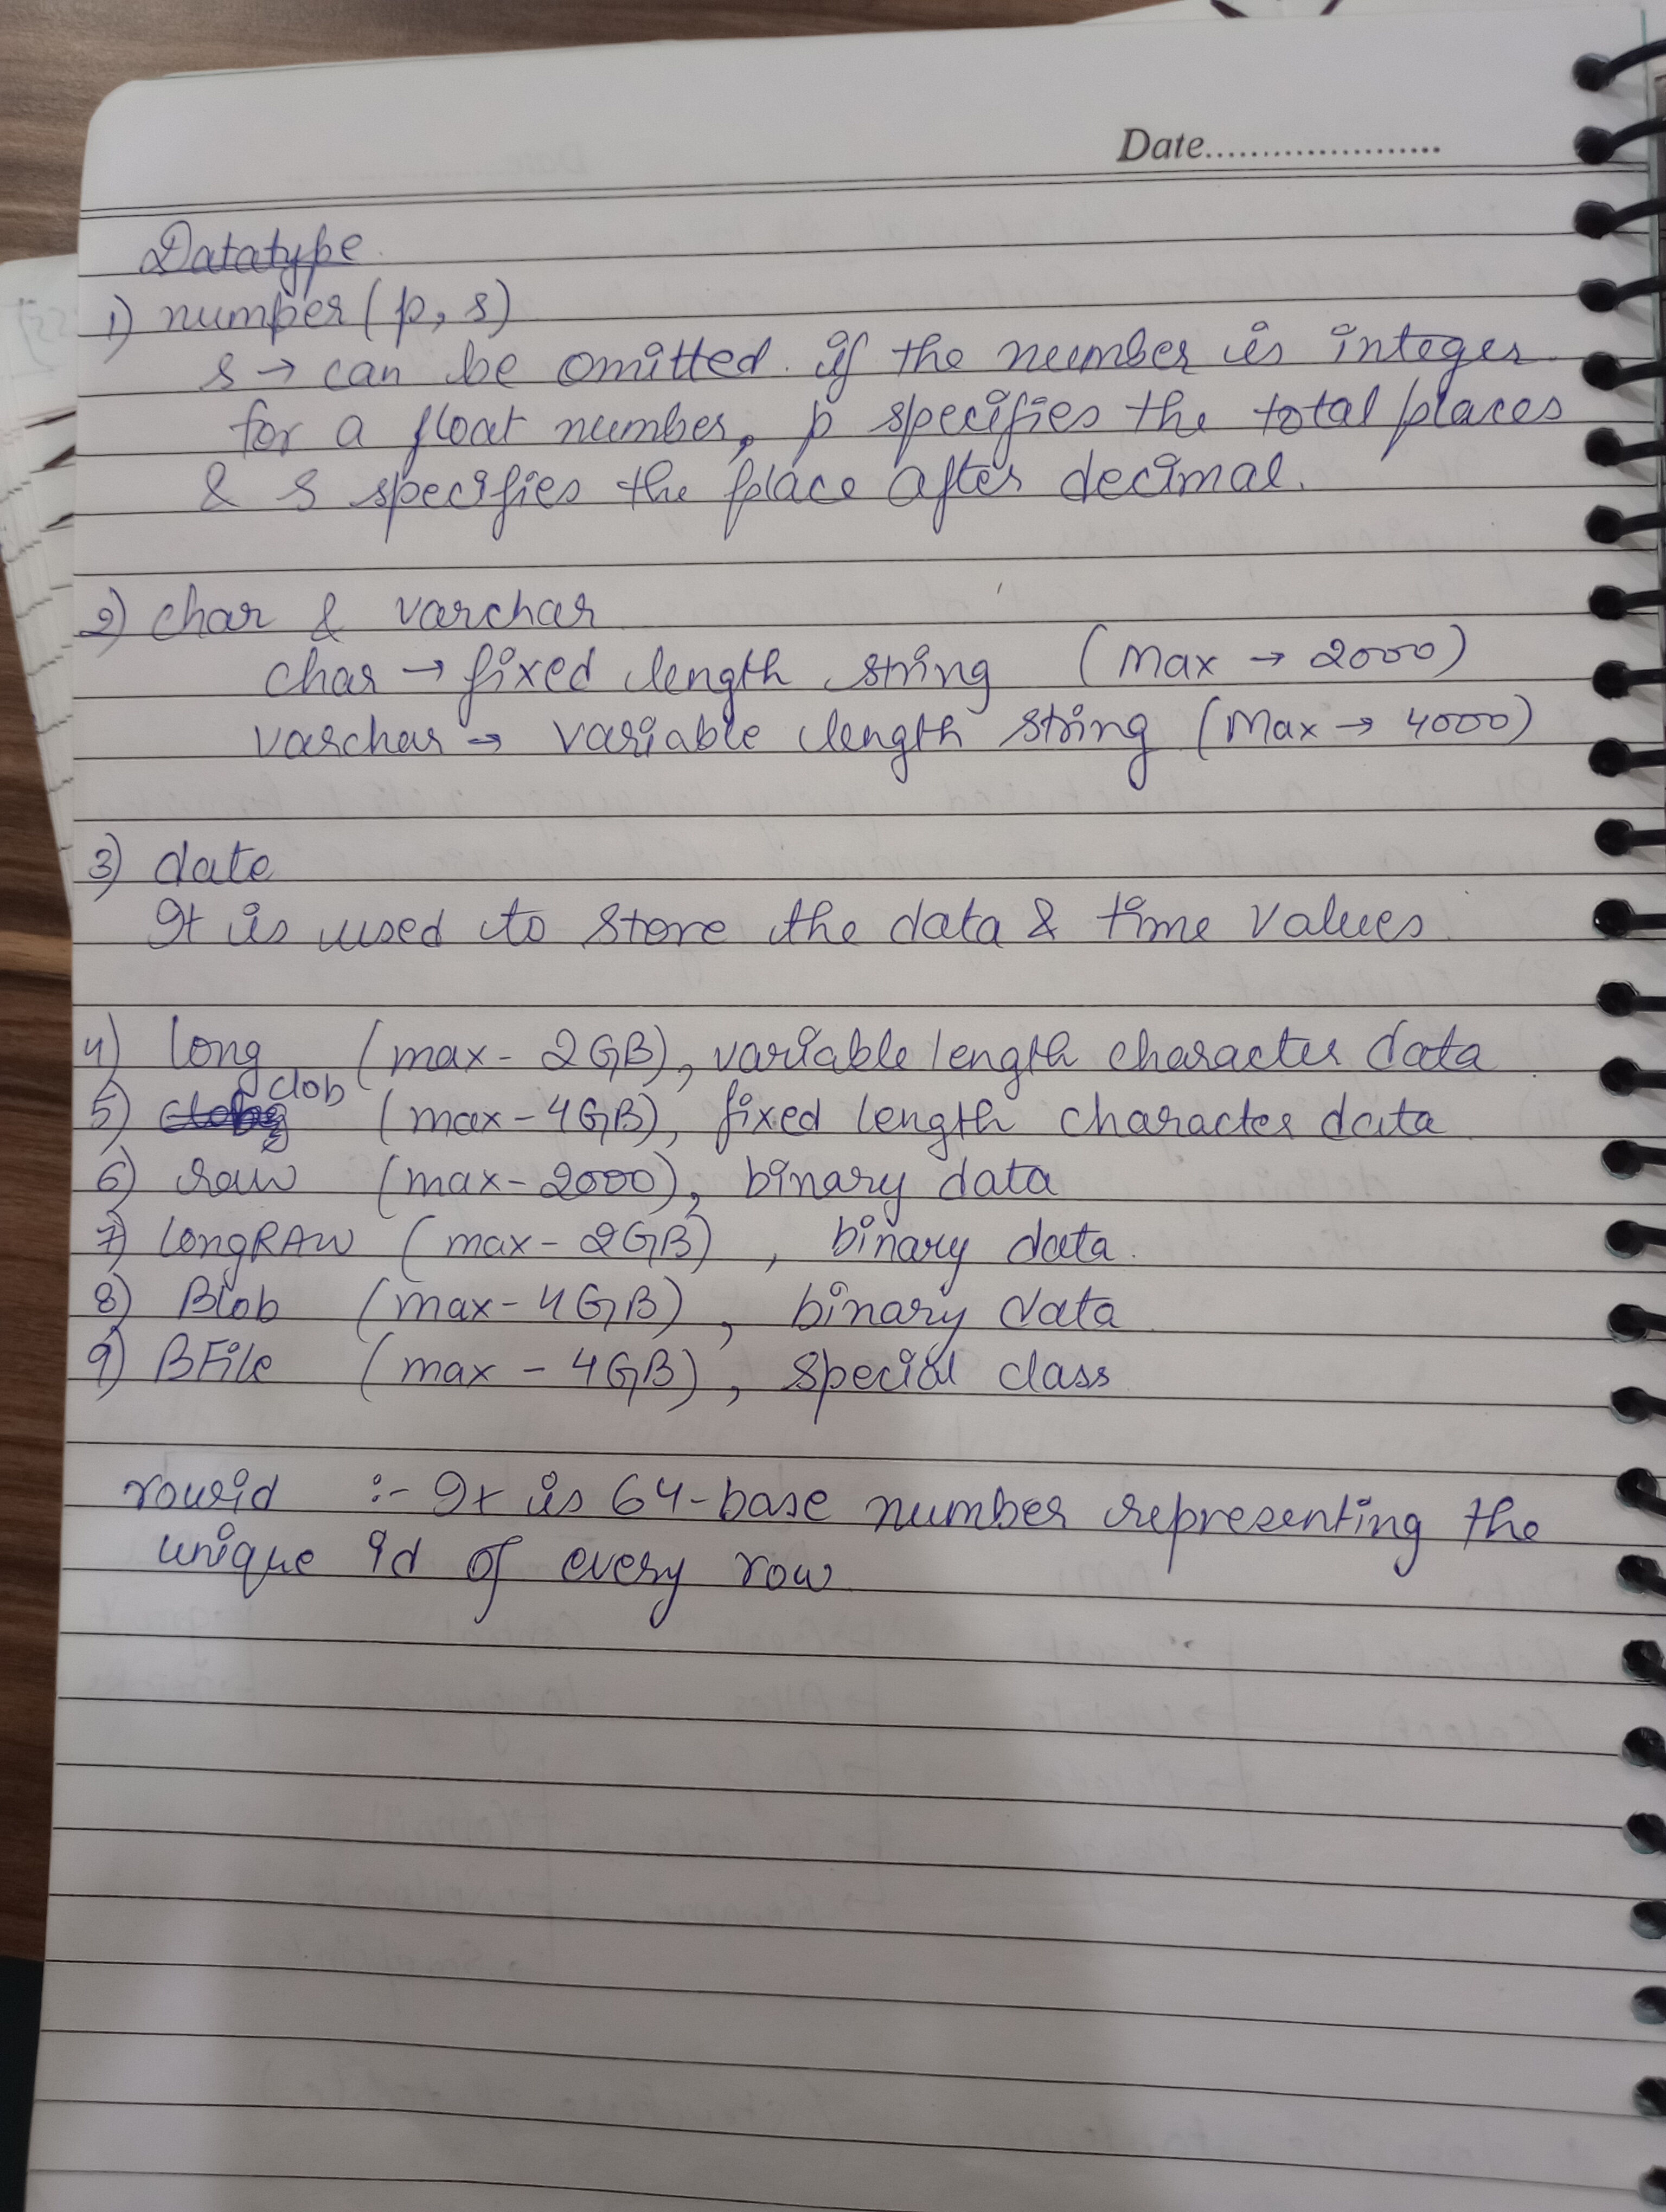 Date.....................
Datatype
1) number (p, s)
s → can be omitted. if the number is integer
for a float number, p specifies the total places
& s specifies the place after decimal.
2) char & varchar
char → fixed length string (Max → 2000)
varchar → variable length string (Max → 4000)
3) date
It is used to store the data & time values
4) long (max - 2GB), variable length character data
5) clob (max - 4GB), fixed length character data
6) raw (max - 2000), binary data
7) LongRAW (max - 2GB), binary data.
8) Blob (max - 4GB), binary data
9) BFile (max - 4GB), special class
rowid :- It is 64-base number representing the
unique id of every row